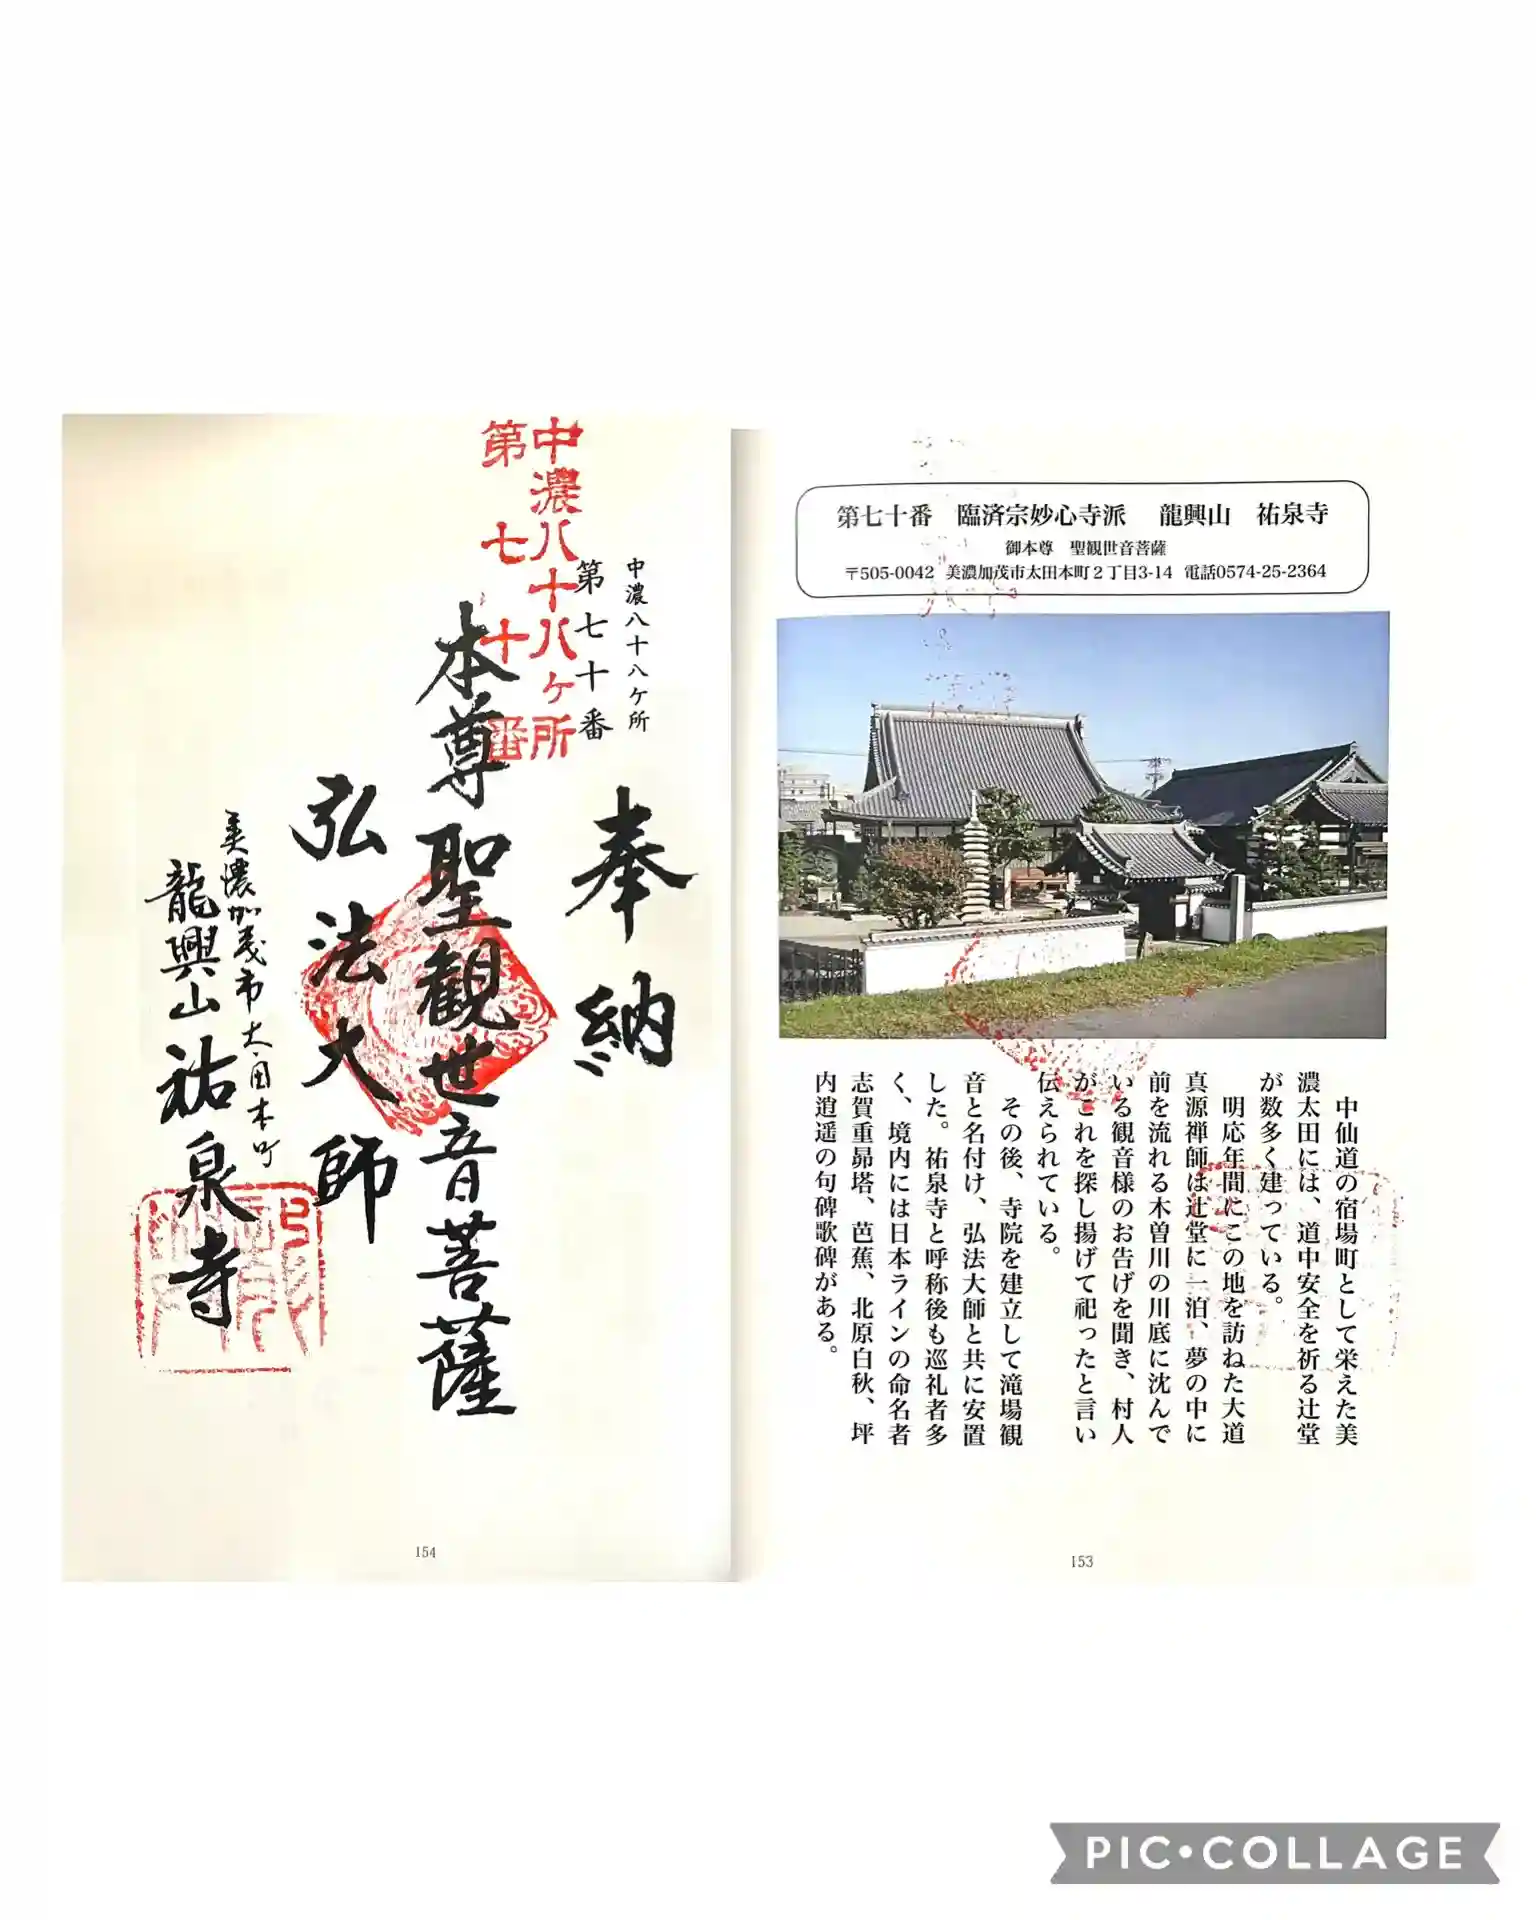 第七十番 臨済宗妙心寺派 龍興山 祐泉寺
御本尊 聖観世音菩薩
〒505-0042 美濃加茂市太田本町2丁目3-14 電話0574-25-2364
中仙道の宿場町として栄えた美
濃太田には、道中安全を祈る辻堂
が数多く建っている。
明応年間にこの地を訪ねた大道
真源禅師は辻堂に一泊、夢の中に
前を流れる木曽川の川底に沈んで
いる観音様のお告げを聞き、村人
がこれを探し揚げて祀ったと言い
伝えられている。
その後、寺院を建立して滝場観
音と名付け、弘法大師と共に安置
した。祐泉寺と呼称後も巡礼者多
く、境内には日本ラインの命名者
志賀重昴塔、芭蕉、北原白秋、坪
内逍遥の句碑歌碑がある。
153
中濃八十八ケ所
第七十番
奉納
中濃八十八ヶ所
第七十番
本尊聖観世音菩薩
弘法大師
美濃加茂市太田本町
龍興山祐泉寺
154
PIC•COLLAGE